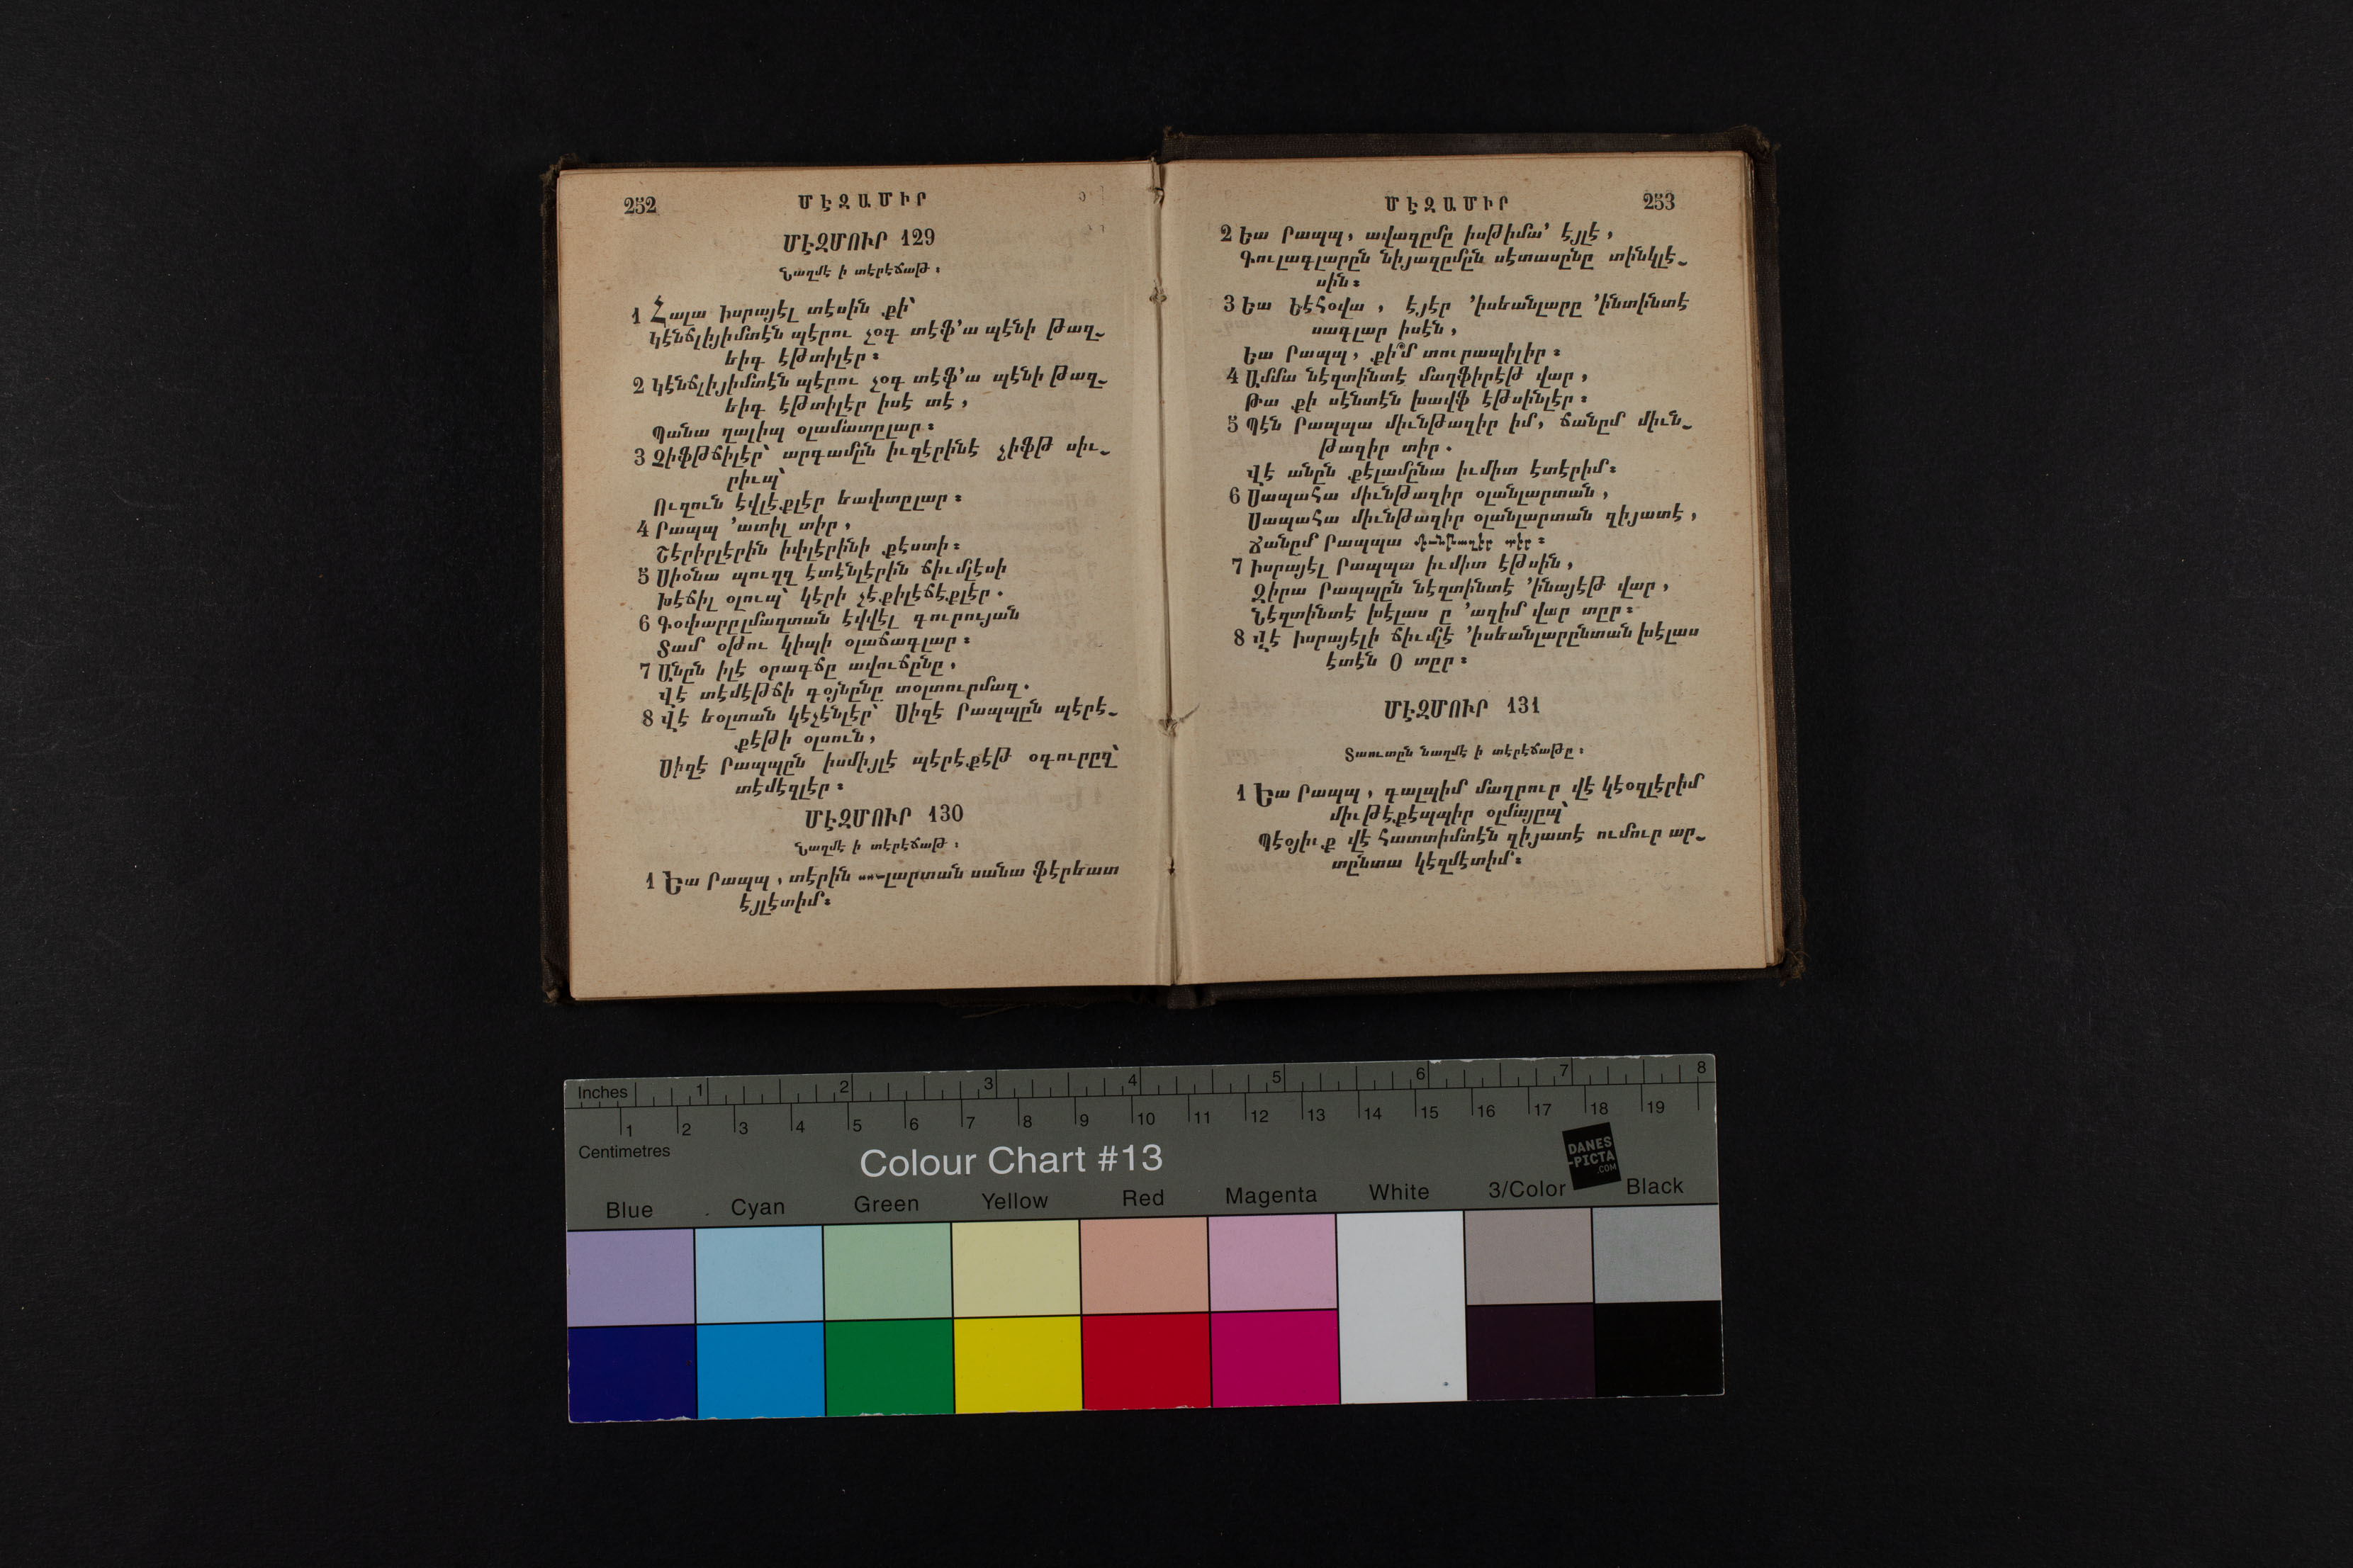 252
ՄԷԶԱՄԻՐ
ՄԷԶՄՈՒՐ 129
Նաղմէ ի տէրէճաթ ։
1 Հալա Իսրայէլ տէսին քի՝
Կէնճլիյիմտէն պէրու չօգ տէֆ՚ա պէնի թազ֊
եիգ էթտիլէր ։
2 Կէնճլիյիմտէն պէրու չօգ տէֆ՚ա պէնի թազ֊
եիգ էթտիլէր իսէ տէ ,
Պանա ղալիպ օլամատըլար ։
3 Չիֆթճիլէր՝ արգամըն իւզէրինէ չիֆթ սիւ֊
րիւպ՝
Ուզուն էվլէքլէր եափտըլար ։
4 Րապպ ՚ատիլ տիր ,
Շէրիրլէրին իփլէրինի քէստի ։
5 Սիօնա պուղզ էտէնլէրին ճիւմլէսի
Խէճիլ օլուպ՝ կէրի չէքիլէճէքլէր .
6 Գօփարըլմազտան էվվէլ գուրույան
Տամ օթու կիպի օլաճագլար ։
7 Անըն իլէ օրագճը ավուճընը ,
Վէ տէմէթճի գօյնընը տօլտուրմազ .
8 Վէ եօլտան կէչէնլէր՝ Սիզէ Րապպըն պէրէ֊
քէթի օլսուն ,
Սիզէ Րապպըն իսմիյլէ պէրէքէթ օգուրըզ՝
տէմէզլէր ։
ՄԷԶՄՈՒՐ 130
Նաղմէ ի տէրէճաթ ։
1 Եա Րապպ , տէրին սուլարտան սանա ֆէրեատ
էյլէտիմ ։
ՄԷԶԱՄԻՐ
253
2 Եա Րապպ , ավազըմը իսթիմա՚ էյլէ ,
Գուլագլարըն նիյազըմըն սէտասընը տինկլէ֊
սին ։
3 Եա Եէհօվա , էյէր ՚իսեանլարը ՚ինտինտէ
սագլար իսէն ,
Եա Րապպ , քի՞մ տուրապիլիր ։
4 Ամմա նէզտինտէ մաղֆիրէթ վար ,
Թա քի սէնտէն խավֆ էթսինլէր ։
5 Պէն Րապպա միւնթազիր իմ , ճանըմ միւն֊
թազիր տիր .
Վէ անըն քէլամընա իւմիտ էտէրիմ ։
6 Սապահա միւնթազիր օլանլարտան ,
Սապահա միւնթազիր օլանլարտան զիյատէ ,
Ճանըմ Րապպա միւնթազիր տիր ։
7 Իսրայէլ Րապպա իւմիտ էթսին ,
Զիրա Րապպըն նէզտինտէ ՚ինայէթ վար ,
Նէզտինտէ խէլաս ը ՚ազիմ վար տըր ։
8 Վէ Իսրայէլի ճիւմլէ ՚իսեանլարընտան խէլաս
էտէն Օ տըր ։
ՄԷԶՄՈՒՐ 131
Տաուտըն նաղմէ ի տէրէճաթը ։
1 Եա Րապպ , գալպիմ մաղրուր վէ կէօզլէրիմ
միւթէքէպպիր օլմայըպ՝
Պէօյիւք վէ հատտիմտէն զիյատէ ումուր ար֊
տընտա կէզմէտիմ ։
Inches 1 2 3 4 5 6 7 8
1 2 3 4 5 6 7 8 9 10 11 12 13 14 15 16 17 18 19
Centimetres
Colour Chart #13
DANES
-PICTA
.COM
Blue Cyan Green Yellow Red Magenta White 3/Color Black